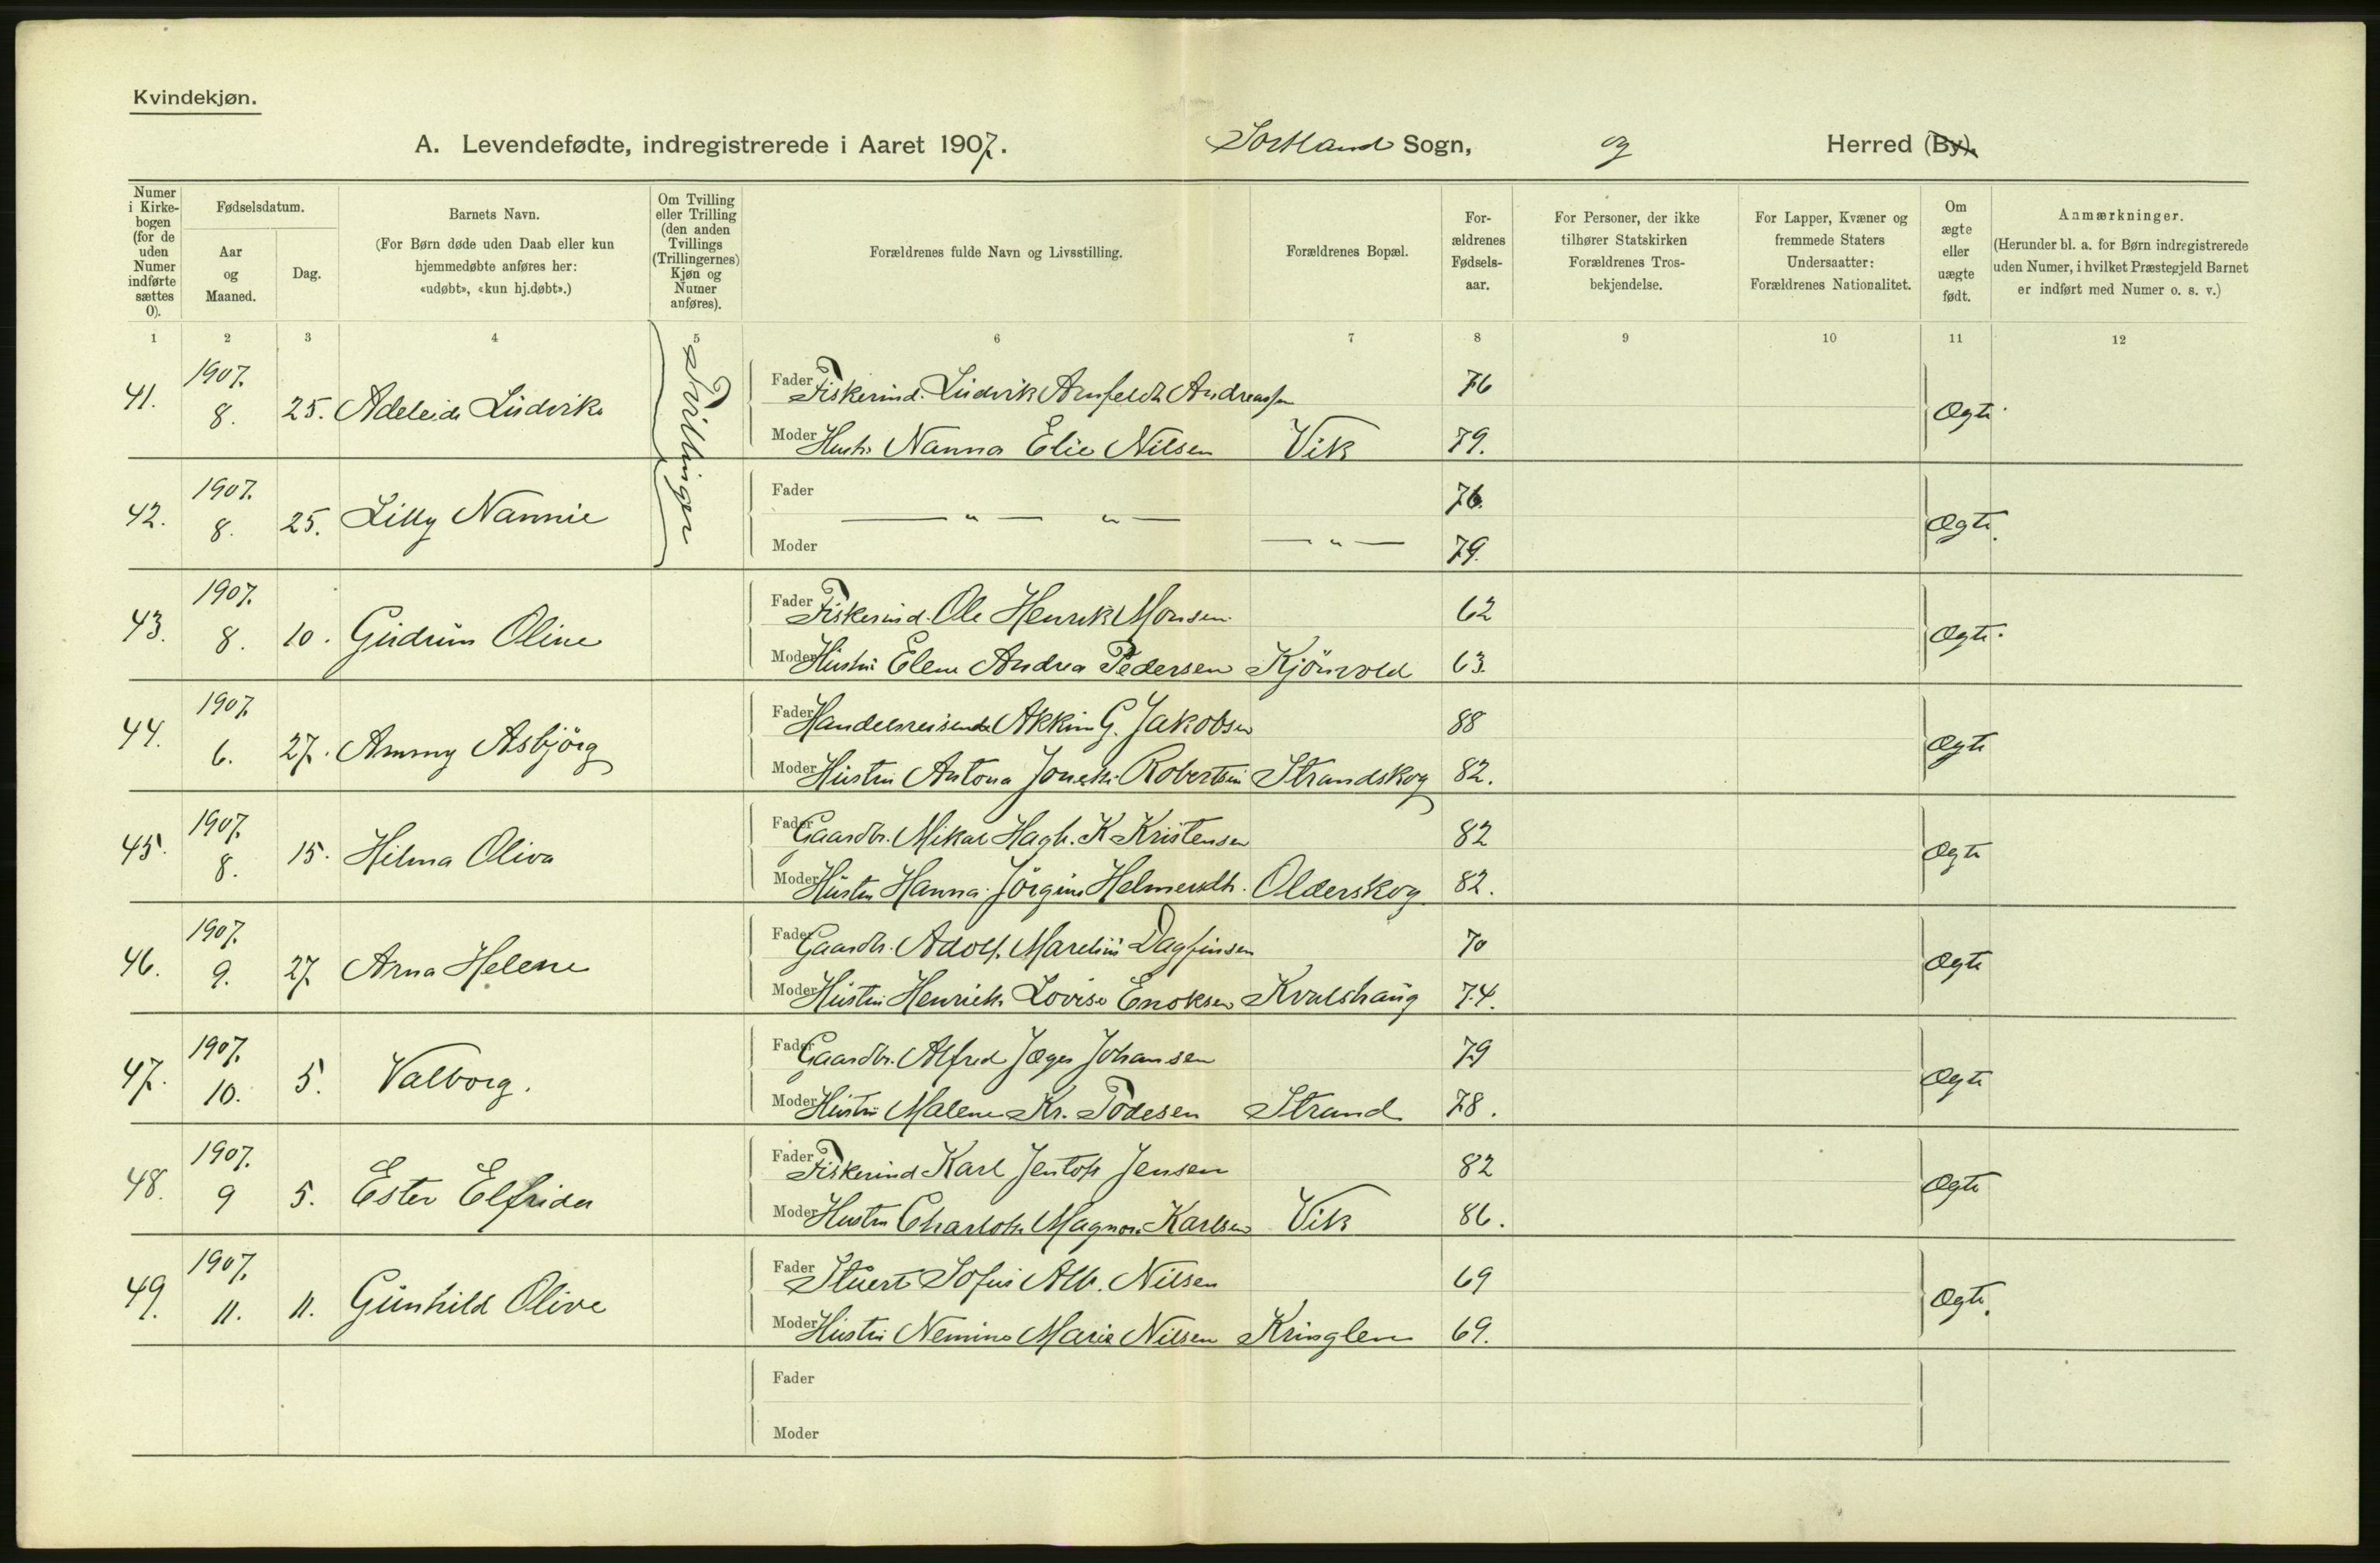 Kvindekjøn.
A. Levendefødte, indregistrerede i Aaret 1907. Sortland Sogn, og Herred (By).
Numer i Kirkebogen (for de uden Numer indførte sættes 0).
Fødselsdatum.
Aar og Maaned.
Dag.
Barnets Navn.
(For Børn døde uden Daab eller kun hjemmedøbte anføres her: «udøbt», «kun hj.døbt».)
Om Tvilling eller Trilling (den anden Tvillings (Trillingernes) Kjøn og Numer anføres).
Forældrenes fulde Navn og Livsstilling.
Forældrenes Bopæl.
For-ældrenes Fødsels-aar.
For Personer, der ikke tilhører Statskirken Forældrenes Tros-bekjendelse.
For Lapper, Kvæner og fremmede Staters Undersaatter: Forældrenes Nationalitet.
Om ægte eller uægte født.
Anmærkninger.
(Herunder bl. a. for Børn indregistrerede uden Numer, i hvilket Præstegjeld Barnet er indført med Numer o. s. v.)
1 2 3 4 5 6 7 8 9 10 11 12
Tvillinger
41. 1907. 8. 25. Adeleide Ludvike Ægte
Fader Fiskerind. Ludvik Arnfeldt Andreassen 76
Moder Hustr Nanna Elie Nilsen Vik 79.
42. 1907. 8. 25. Lilly Nannie Ægte.
Fader — " — " — 76.
Moder — " — 79.
43. 1907. 8. 10. Gudrun Oline Ægte.
Fader Fiskerind. Ole Henrik Monsen 62
Moder Hustru Elene Andrea Pedersen Kjörsvold 63.
44. 1907. 6. 27. Ammy Asbjörg Ægte
Fader Handelsreisende Akkim G. Jakobsen 88
Moder Hustru Antona Jonette Robertsen Strandskog 82.
45. 1907. 8. 15. Hilma Oliva Ægte
Fader Gaardbr. Mikal Hagb. K Kristensen 82
Moder Hustru Hanna Jörgine Helmersdtr. Olderskog 82.
46. 1907. 9. 27 Arna Helene Ægte
Fader Gaardbr. Adolf Marelius Dagfinsen 70
Moder Hustru Henrikke Lovise Enoksen Kvalshaug 74.
47. 1907. 10. 5. Valborg. Ægte
Fader Gaardbr. Alfred Jæger Johansen 79
Moder Hustru Malene Kr. Todesen Strand 78.
48. 1907. 9 5. Ester Elfrida Ægte
Fader Fiskerind Karl Jentoft Jensen 82
Moder Hustru Charlotte Magnora Karlsen Vik 86.
49. 1907. 11. 11. Gunhild Olive Ægte.
Fader Stuert Sofus Alb. Nilsen 69
Moder Hustru Nemine Marie Nilsen Kringlen 69.
Fader
Moder